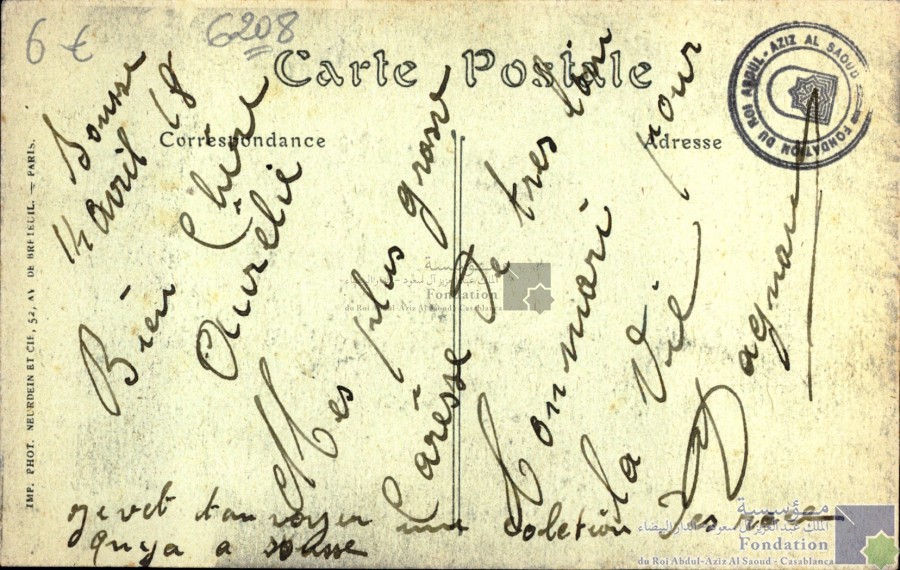 6 €
6208
Carte Postale
Correspondance
Adresse
FONDATION DU ROI ABDUL-AZIZ AL SAOUD
IMP. PHOT. NEURDEIN ET CIE, 52, AV. DE BRETEUIL. — PARIS.
Sousse
14 avril 18
Bien Chère
Aurelie
Mes plus grosse
Caresse De tres loin
Ton mari pour
la Vie
Dagnan
je vet t'anvoyer une coletion Des
qu'ya a sousse
مؤسسة
الملك عبد العزيز آل سعود - الدار البيضاء
Fondation
du Roi Abdul-Aziz Al Saoud - Casablanca
مؤسسة
الملك عبد العزيز آل سعود - الدار البيضاء
Fondation
du Roi Abdul-Aziz Al Saoud - Casablanca